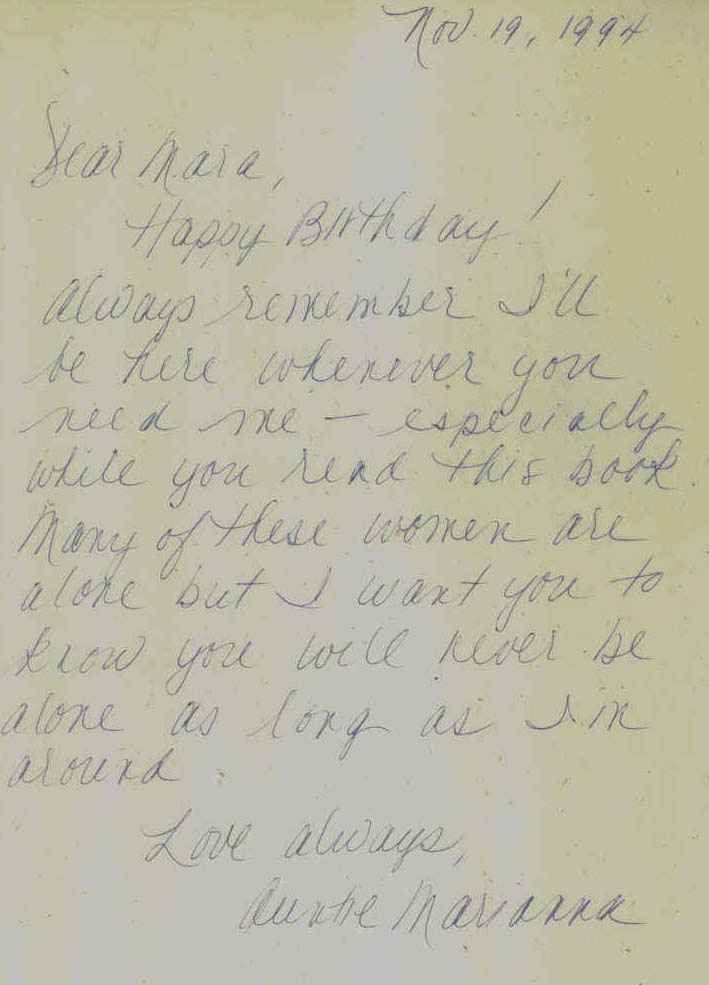 Nov. 19, 1994
Dear Mara,
Happy Birthday!
Always remember I'll
be here whenever you
need me — especially
while you read this book.
Many of these women are
alone but I want you to
know you will never be
alone as long as I'm
around.
Love always,
Auntie Marianna